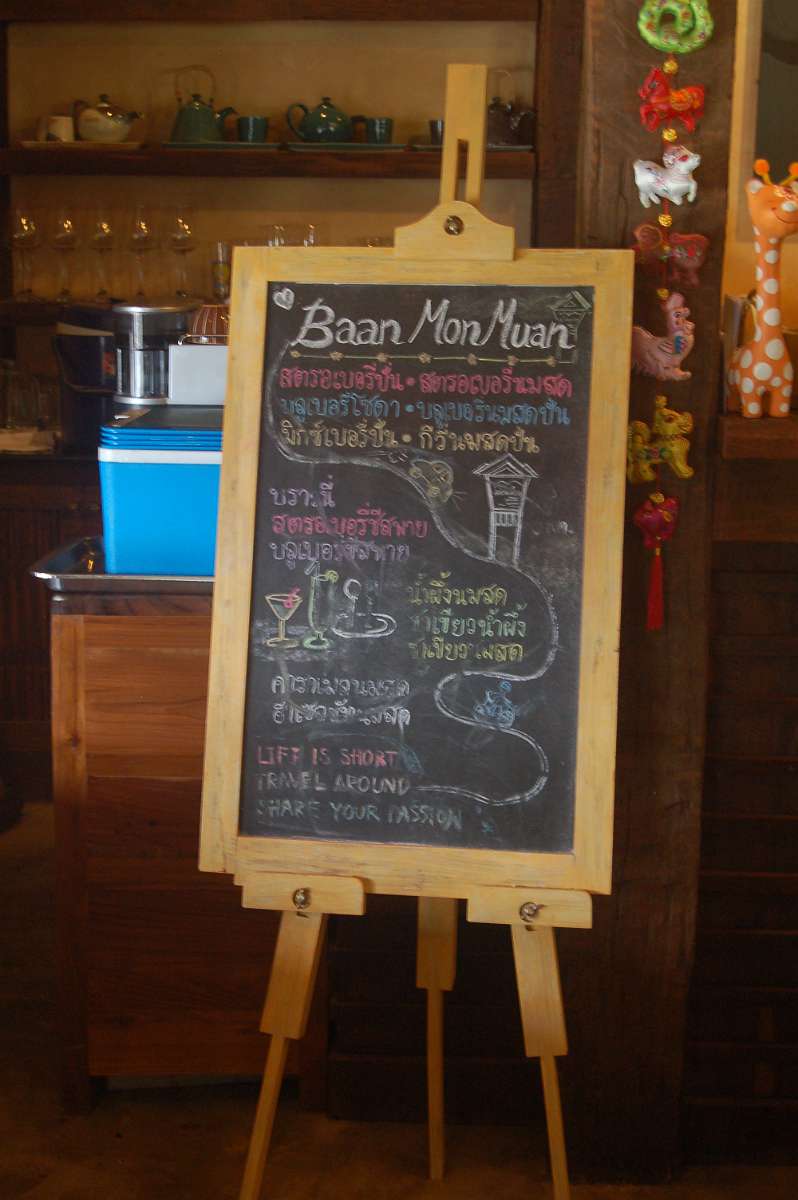 Baan Mon Muan
สตรอเบอรี่ปั่น • สตรอเบอรี่นมสด
บลูเบอรี่โซดา • บลูเบอรี่นมสดปั่น
มิกซ์เบอรี่ปั่น • กีวีนมสดปั่น
บราวนี่
สตรอเบอรี่ชีสพาย
บลูเบอรี่ชีสพาย
น้ำผึ้งนมสด
ชาเขียวน้ำผึ้ง
ชาเขียวนมสด
คาราเมลนมสด
ฮาเซลนัทนมสด
LIFE IS SHORT
TRAVEL AROUND
SHARE YOUR PASSION